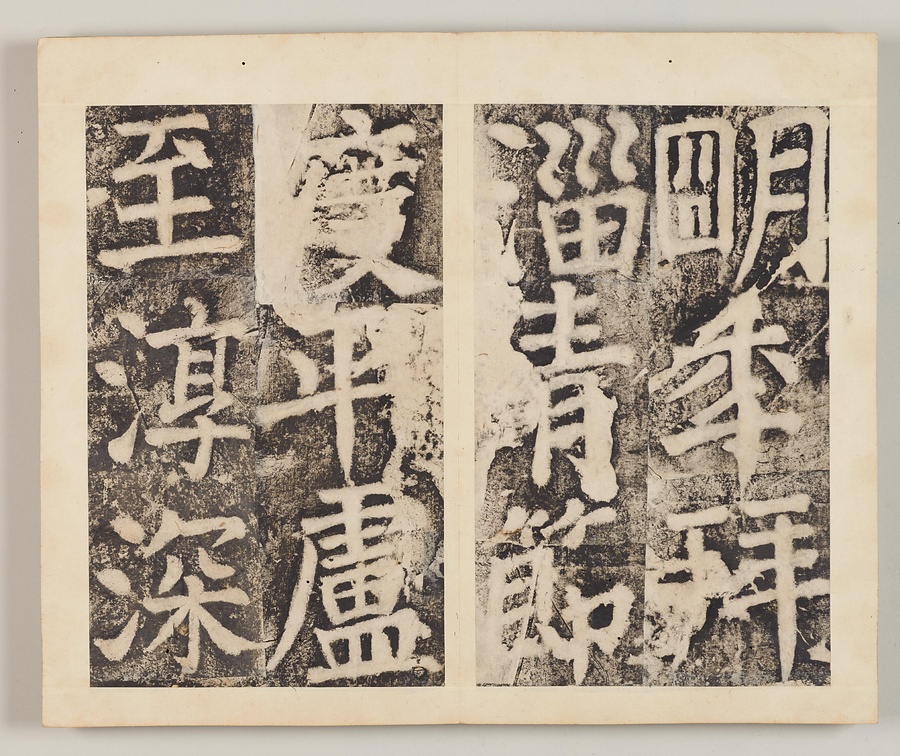 朙年拜
淄青節
度平盧
至淳深